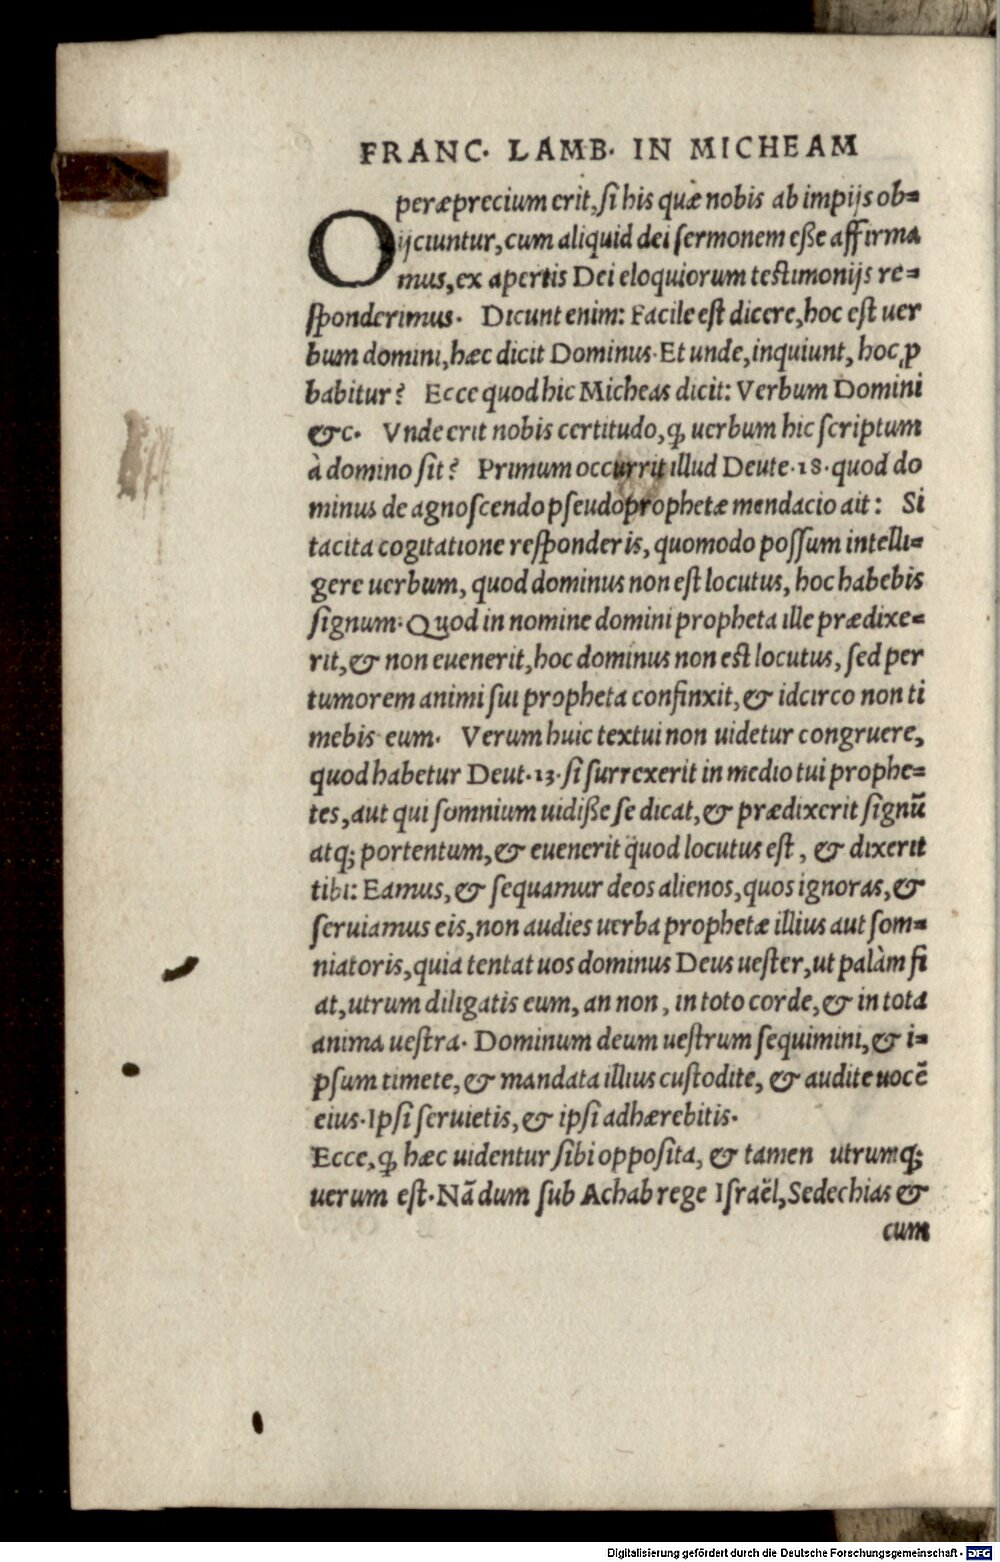 FRANC· LAMB· IN MICHEAM
Operæprecium erit, si his quæ nobis ab impijs ob=
ijciuntur, cum aliquid dei sermonem eße affirma
mus, ex apertis Dei eloquiorum testimonijs re=
sponderimus· Dicunt enim: Facile est dicere, hoc est uer
bum domini, hæc dicit Dominus· Et unde, inquiunt, hoc ꝓ
babitur? Ecce quod hic Micheas dicit: Verbum Domini
&c· Vnde erit nobis certitudo, ꝙ uerbum hic scriptum
à domino sit? Primum occurrit illud Deute·18·quod do
minus de agnoscendo pseudoprophetæ mendacio ait: Si
tacita cogitatione responderis, quomodo possum intelli=
gere uerbum, quod dominus non est locutus, hoc habebis
signum· Quod in nomine domini propheta ille prædixe=
rit, & non euenerit, hoc dominus non est locutus, sed per
tumorem animi sui propheta confinxit, & idcirco non ti
mebis eum· Verum huic textui non uidetur congruere,
quod habetur Deut·13·si surrexerit in medio tui prophe=
tes, aut qui somnium uidiße se dicat, & prædixerit signũ
atq; portentum, & euenerit quod locutus est, & dixerit
tibi: Eamus, & sequamur deos alienos, quos ignoras, &
seruiamus eis, non audies uerba prophetæ illius aut som=
niatoris, quia tentat uos dominus Deus uester, ut palàm fi
at, utrum diligatis eum, an non, in toto corde, & in tota
anima uestra· Dominum deum uestrum sequimini, & i=
psum timete, & mandata illius custodite, & audite uocẽ
eius· Ipsi seruietis, & ipsi adhærebitis·
Ecce, ꝙ hæc uidentur sibi opposita, & tamen utrumq;
uerum est· Nã dum sub Achab rege Israël, Sedechias &
cum
Digitalisierung gefördert durch die Deutsche Forschungsgemeinschaft · DFG